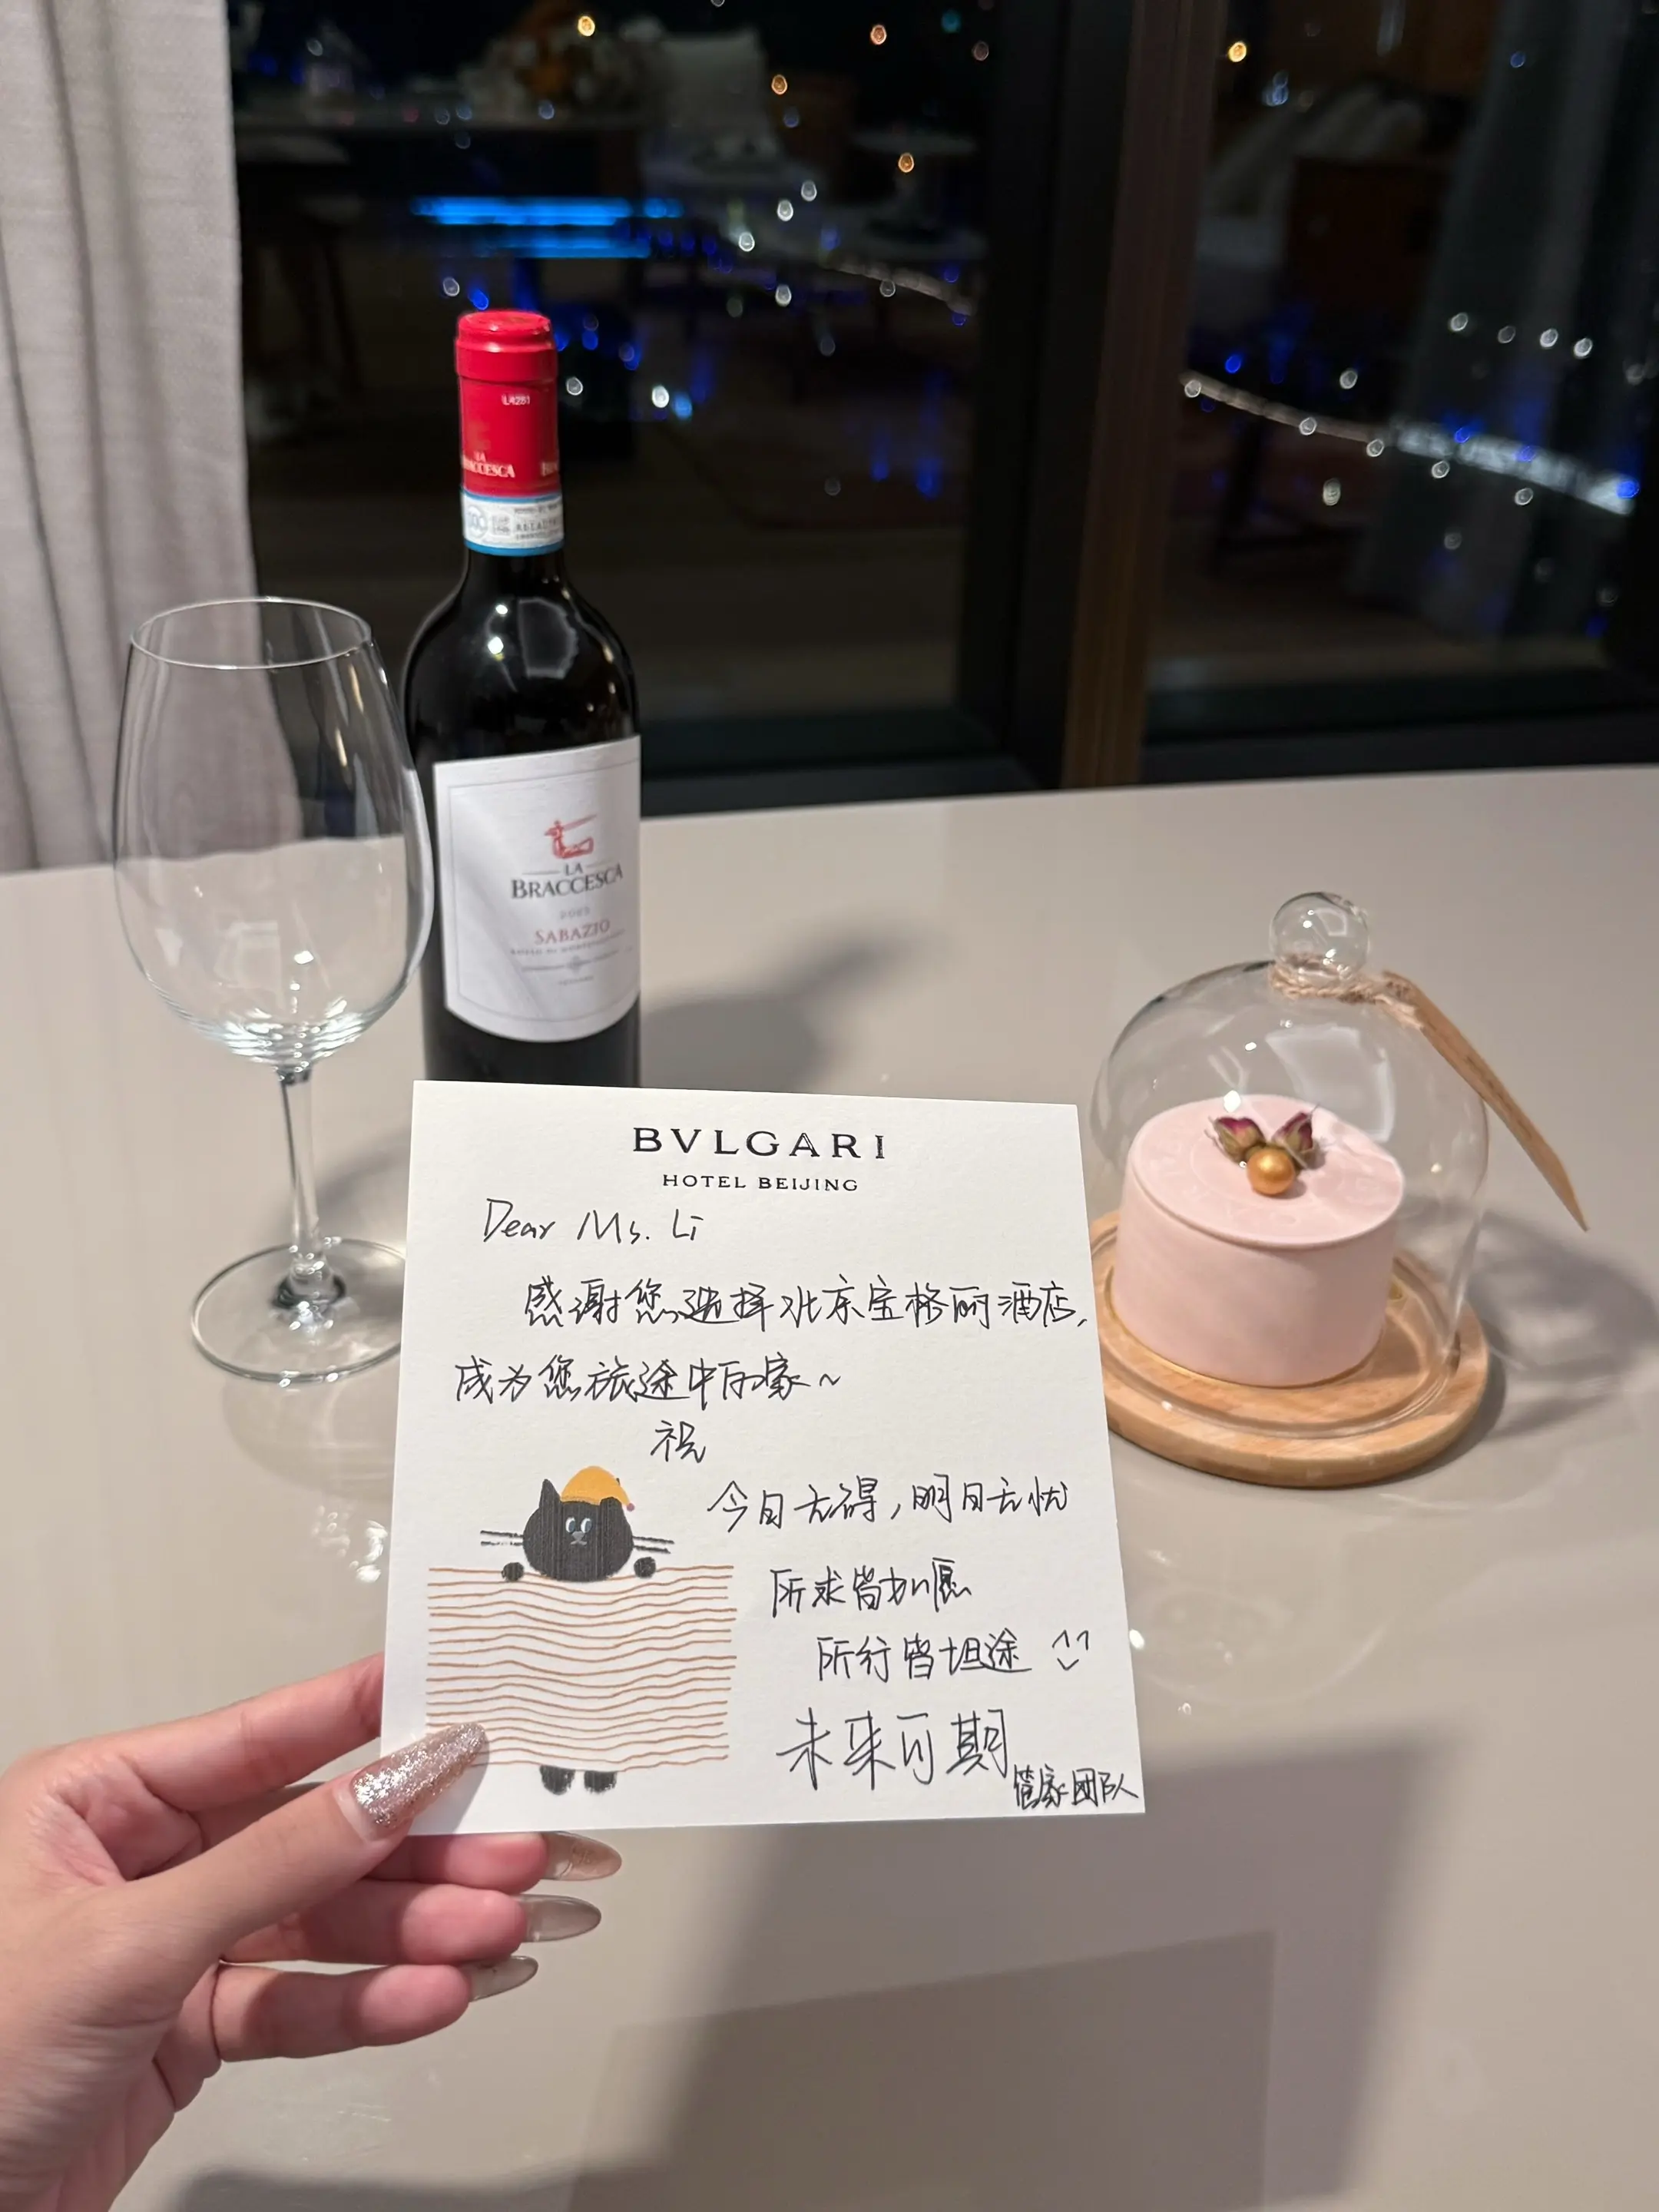 L4281
LA
BRACCESCA
LA
BRACCESCA
SABAZIO
BVLGARI
HOTEL BEIJING
Dear Ms. Li
感谢您选择北京宝格丽酒店,
成为您旅途中的家~
祝
今日无碍,明日无忧
所求皆如愿
所行皆坦途
未来可期
管家团队